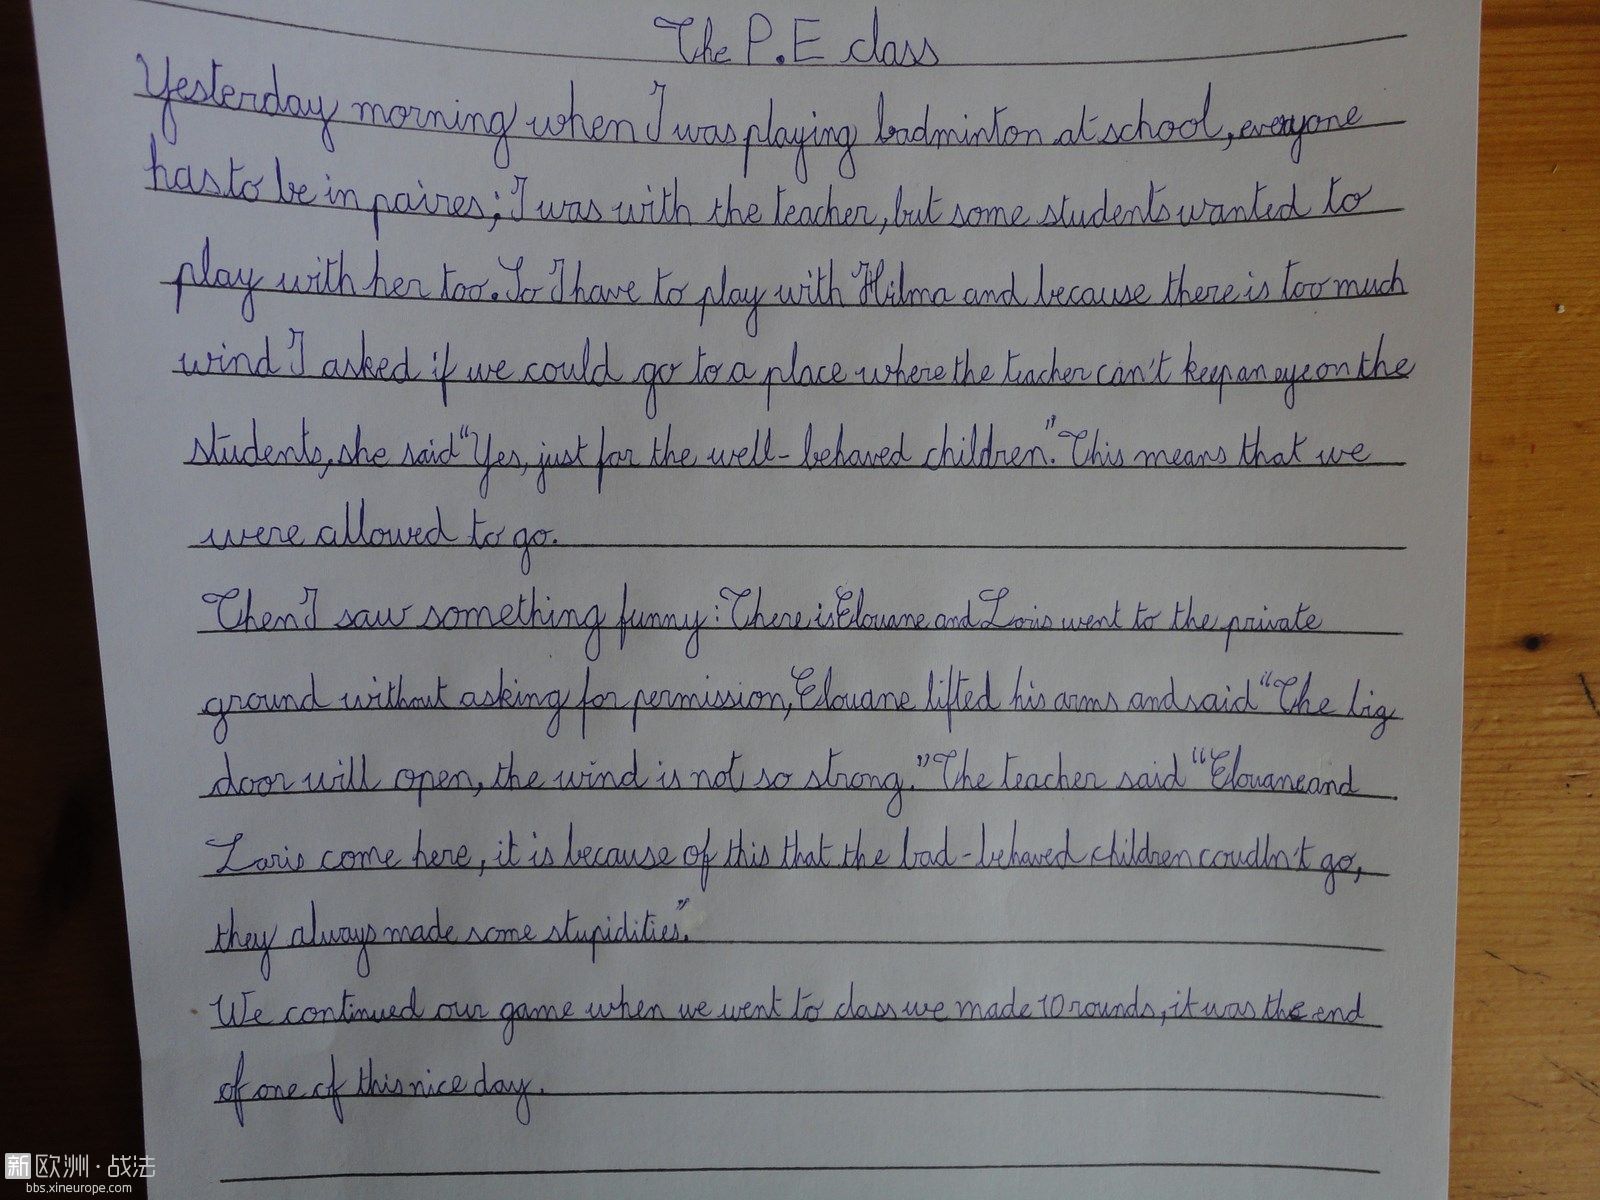 The P.E class
Yesterday morning when I was playing badminton at school, everyone
has to be in paires; I was with the teacher, but some students wanted to
play with her too. So I have to play with Hilma and because there is too much
wind I asked if we could go to a place where the teacher can't keep an eye on the
students, she said "Yes, just for the well-behaved children." This means that we
were allowed to go.
Then I saw something funny: There is Elouane and Loris went to the private
ground without asking for permission, Elouane lifted his arms and said "The big
door will open, the wind is not so strong." The teacher said "Elouane and
Loris come here, it is because of this that the bad-behaved children coudln't go,
they always made some stupidities."
We continued our game when we went to class we made 10 rounds, it was the end
of one of this nice day.
新欧洲·战法
bbs.xineurope.com